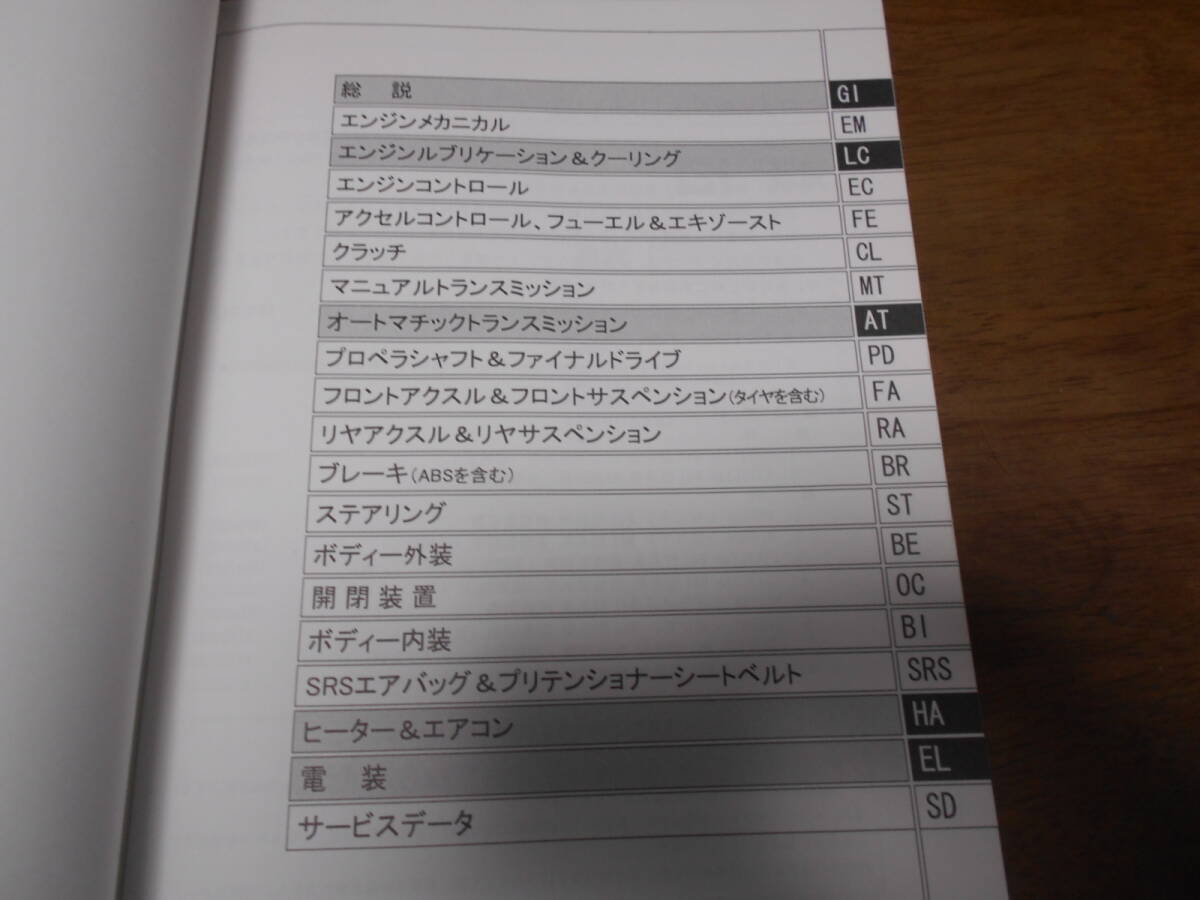 総 説 GI
エンジンメカニカル EM
エンジンルブリケーション＆クーリング LC
エンジンコントロール EC
アクセルコントロール、フューエル＆エキゾースト FE
クラッチ CL
マニュアルトランスミッション MT
オートマチックトランスミッション AT
プロペラシャフト＆ファイナルドライブ PD
フロントアクスル＆フロントサスペンション(タイヤを含む) FA
リヤアクスル＆リヤサスペンション RA
ブレーキ(ABSを含む) BR
ステアリング ST
ボディー外装 BE
開閉装置 OC
ボディー内装 BI
SRSエアバッグ＆プリテンショナーシートベルト SRS
ヒーター＆エアコン HA
電 装 EL
サービスデータ SD